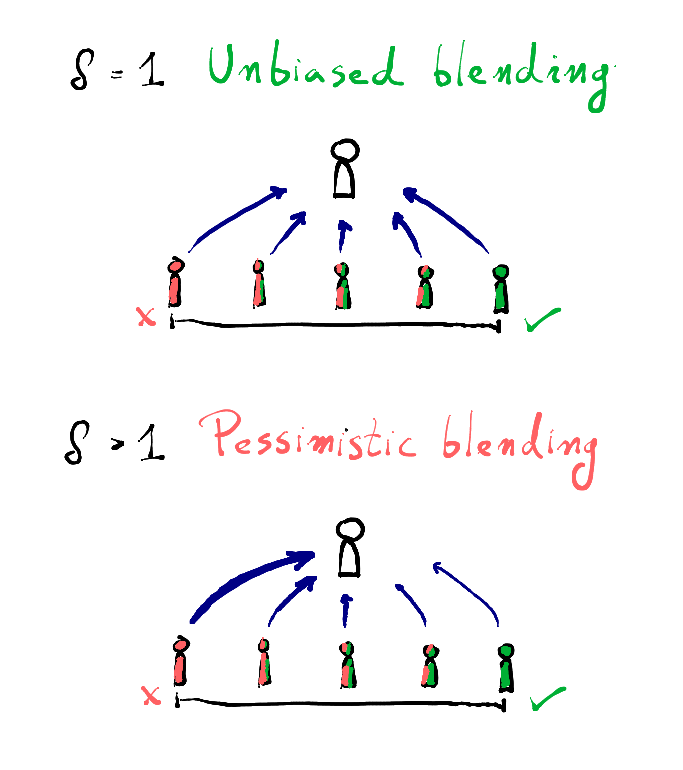 δ = 1 Unbiased blending
x ✓
δ > 1 Pessimistic blending
x ✓